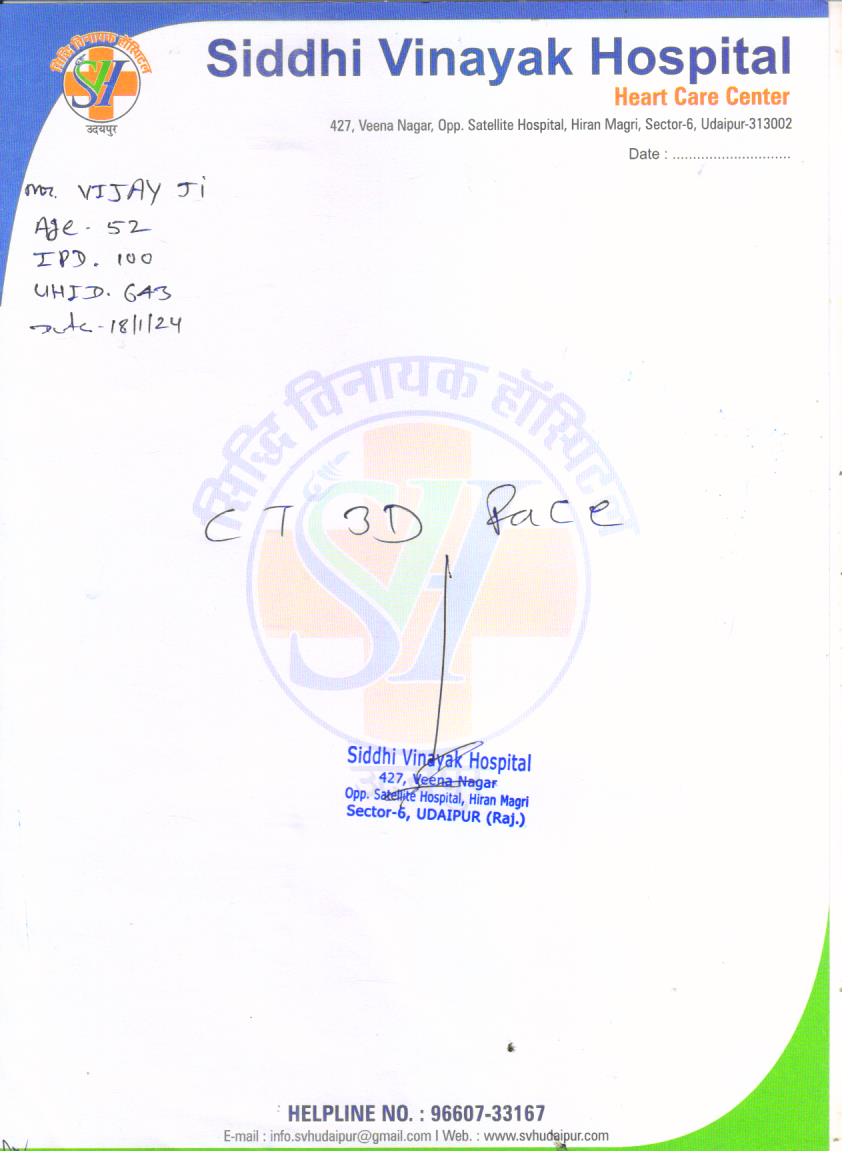 सिद्धि विनायक हॉस्पिटल
SVH
उदयपुर
Siddhi Vinayak Hospital
Heart Care Center
427, Veena Nagar, Opp. Satellite Hospital, Hiran Magri, Sector-6, Udaipur-313002
Date : .............................
Mr. VIJAY Ji
Age - 52
IPD. 100
UHID. 643
Date - 18/1/24
सिद्धि विनायक हॉस्पिटल
SVH
CT 3D face
Siddhi Vinayak Hospital
427, Veena Nagar
Opp. Satellite Hospital, Hiran Magri
Sector-6, UDAIPUR (Raj.)
HELPLINE NO. : 96607-33167
E-mail : info.svhudaipur@gmail.com I Web. : www.svhudaipur.com